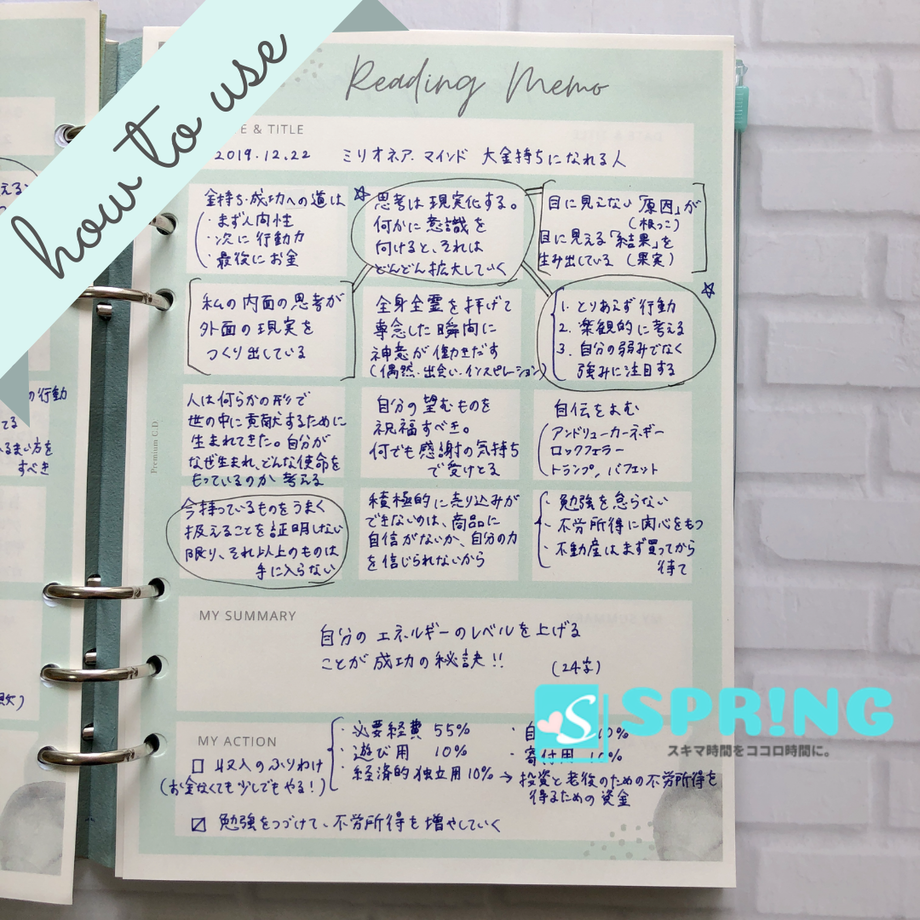 how to use
Reading Memo
E & TITLE
2019.12.22 ミリオネア.マインド 大金持ちになれる人
金持ち・成功への道は
・まず人間性
・次に行動力
・最後にお金
☆思考は現実化する。
何かに意識を
向けると、それは
どんどん拡大していく
目に見えない「原因」が
(根っこ)
目に見える「結果」を
生み出している (果実)
私の内面の思考が
外面の現実を
つくり出している
全身全霊を捧げて
専念した瞬間に
神意が働きだす
(偶然.出会い.インスピレーション)
☆
1. とりあえず行動
2. 楽観的に考える
3. 自分の弱みでなく
強みに注目する
人は何らかの形で
世の中に貢献するために
生まれてきた。自分が
なぜ生まれ、どんな使命を
もっているのか考える
自分の望むものを
祝福すべき。
何でも感謝の気持ち
で受けとる
自伝をよむ
アンドリューカーネギー
ロックフェラー
トランプ, バフェット
今持っているものをうまく
扱えることを証明しない
限り、それ以上のものは
手に入らない
積極的に売り込みが
できないのは、商品に
自信がないか、自分の力
を信じられないから
・勉強を怠らない
・不労所得に関心をもつ
・不動産はまず買ってから
待て
Premium C.D
MY SUMMARY
自分のエネルギーのレベルを上げる
ことが成功の秘訣!!
(24字)
MY ACTION
□ 収入のふりわけ
(お金なくても少しでもやる!)
・必要経費 55%
・遊び用 10%
・経済的独立用10% → 投資と老後のための不労所得を
得るための資金
・自 10%
・寄付用 10%
☑ 勉強をつづけて、不労所得を増やしていく
の行動
てる
るまい方を
すべき
S SPR!NG
スキマ時間をココロ時間に。